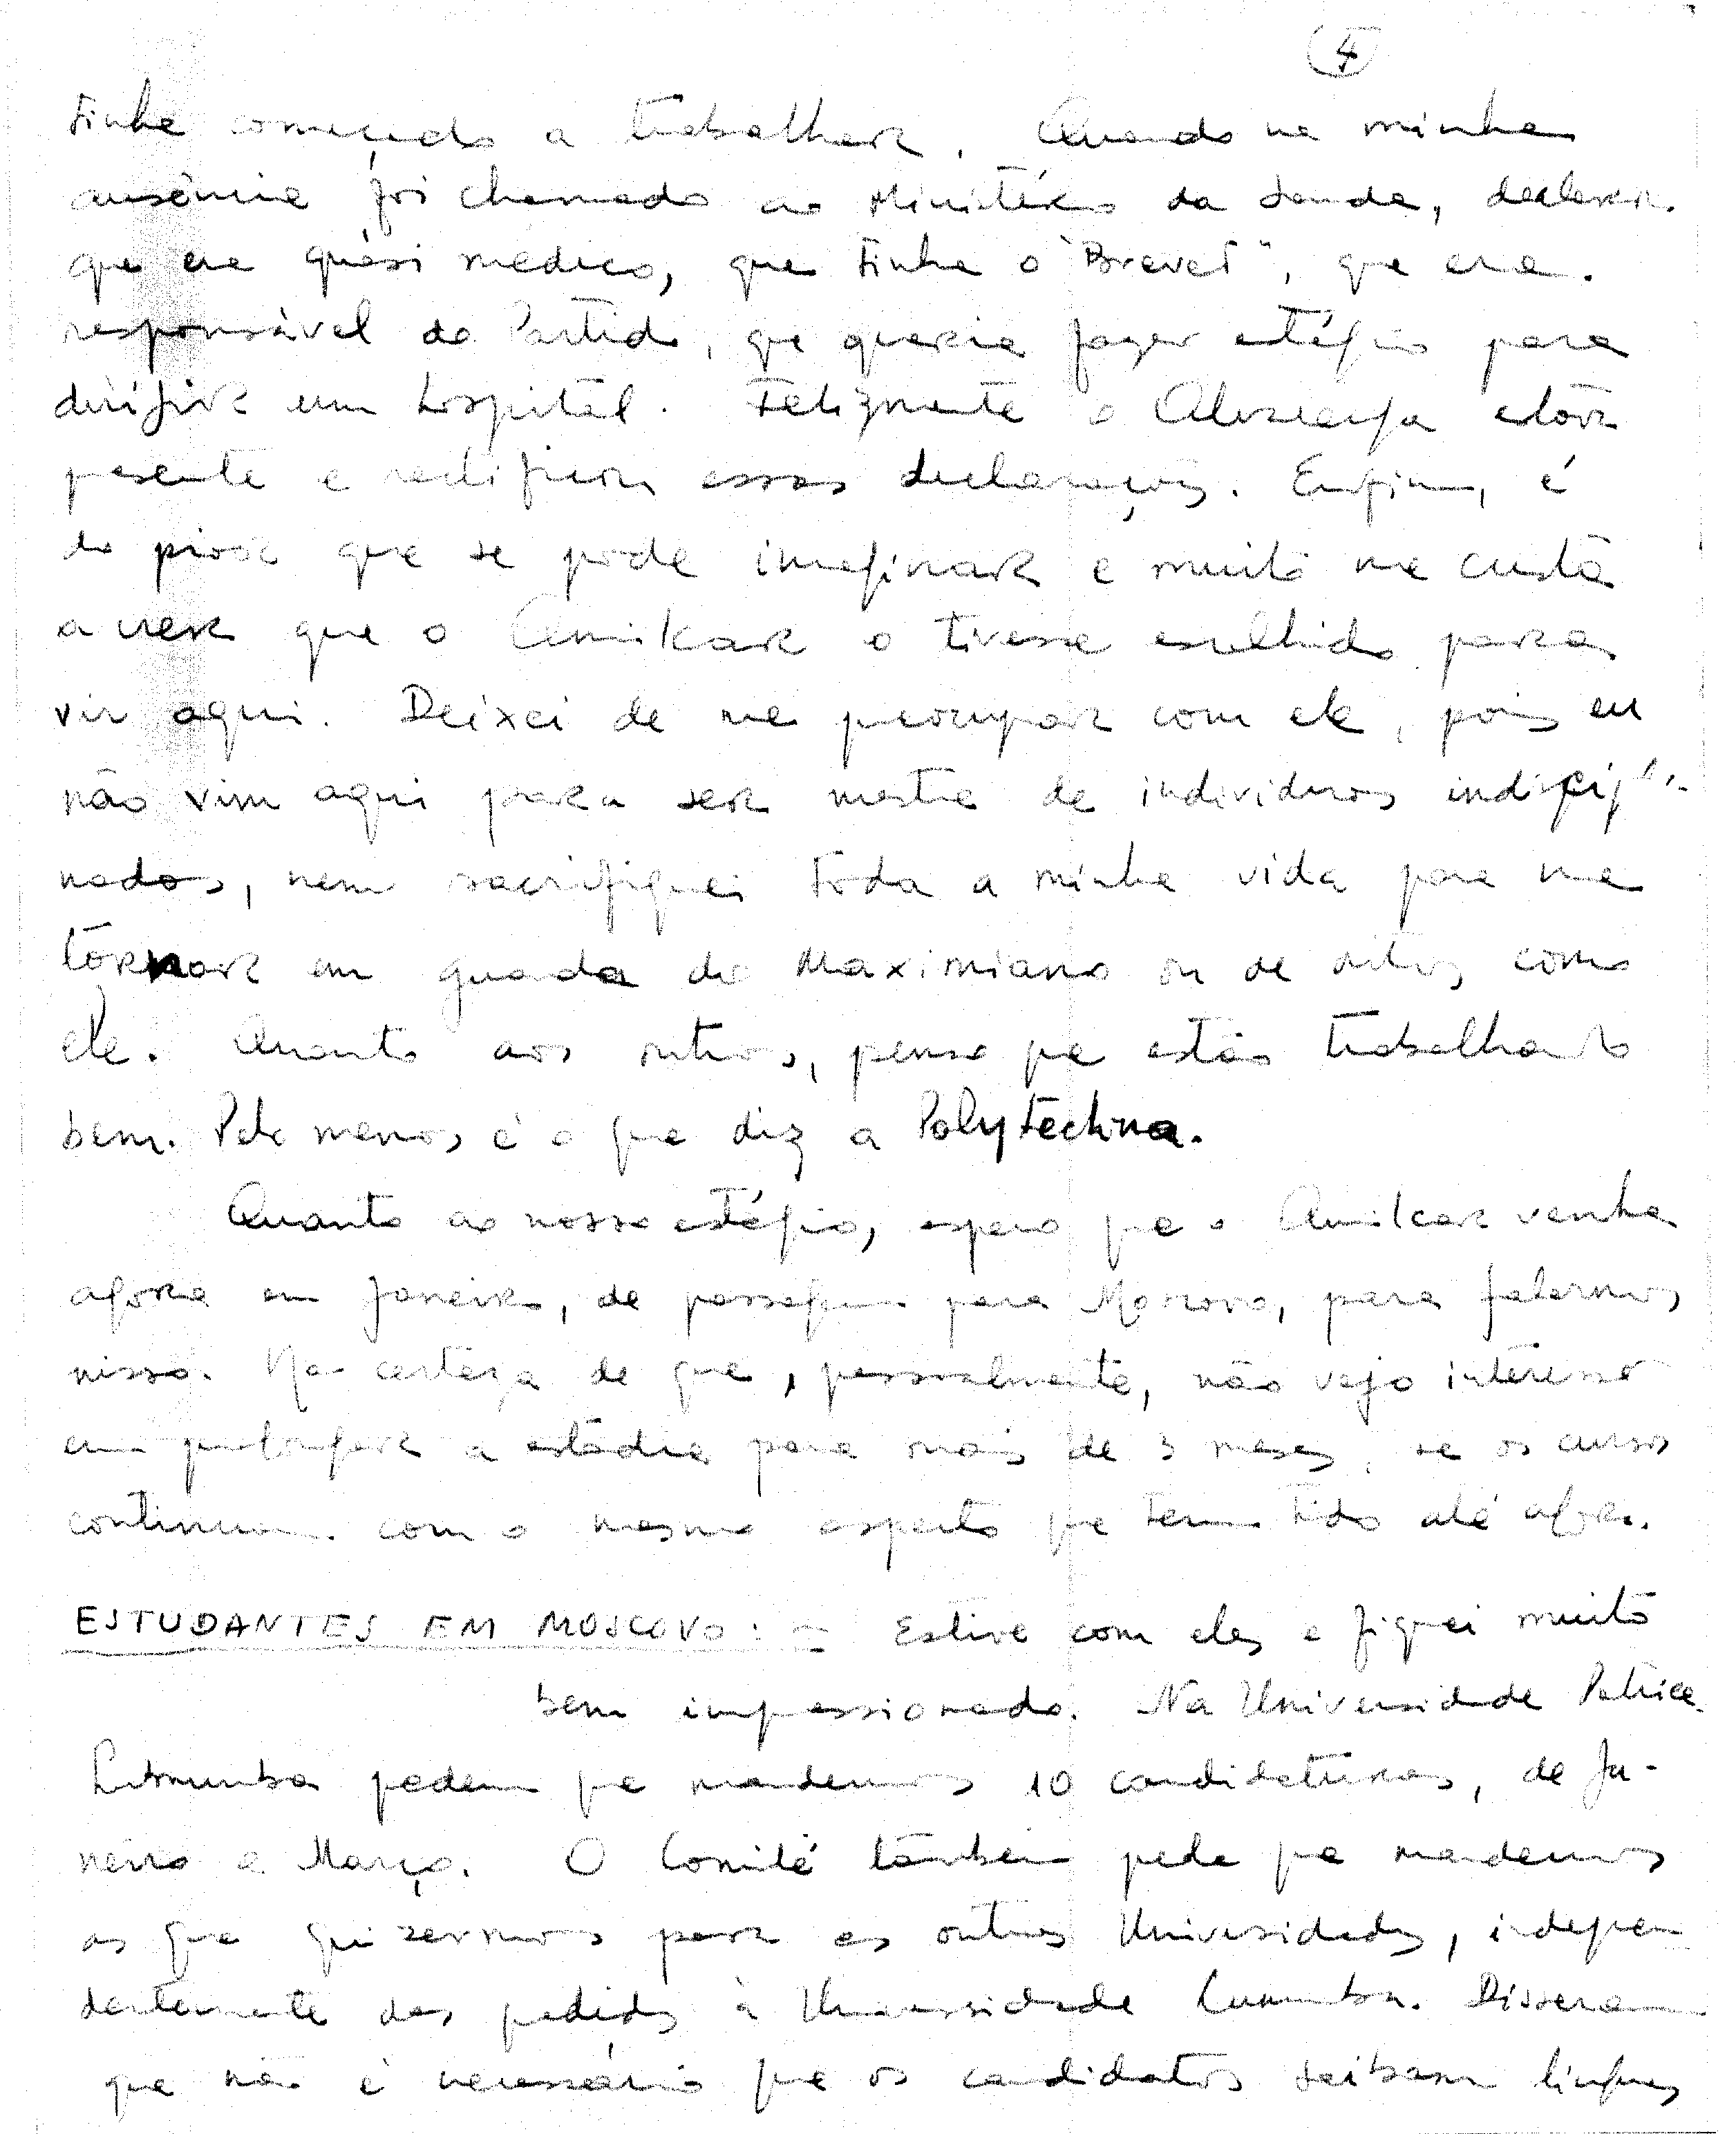 4
tinha começado a trabalhar. Quando na minha
ausência foi chamado ao Ministério da Saude, declarou
que era quási medico, que tinha o "Brevet", que era
responsável do Partido, que queria fazer estágio para
dirigir um hospital. Felizmente o Alvarenga estava
presente e rectificou essas declarações. Enfim, é
do pior que se pode imaginar e muito me custa
a crer que o Amilcar o tivesse escolhido para
vir aqui. Deixei de me preocupar com ele, pois eu
não vim aqui para ser mestre de individuos indisci-
nados, nem sacrifiquei toda a minha vida para me
tornar em guarda do Maximiano ou de outros como
ele. Quanto aos outros, penso que estão trabalhando
bem. Pelo menos é o que diz a Polytechna.
Quanto ao nosso estágio, espero que o Amilcar venha
agora em Janeiro, de passagem para Moscovo, para falarmos
nisso. Na certeza de que, pessoalmente, não vejo interesse
em prolongar a estadia para mais de 3 meses, se os cursos
continuam com o mesmo aspecto que tem tido até agora.
ESTUDANTES EM MOSCOVO: - Estive com eles e fiquei muito
bem impressionado. Na Universidade Patrice
Lumumba pedem que mandemos 10 candidaturas, de Ja-
neiro a Março. O Comité também pede que mandemos
os que quizermos para as outras Universidades, indepen
dentemente dos pedidos à Universidade Lumumba. Disseram
que não é necessário que os candidatos saibam linguas